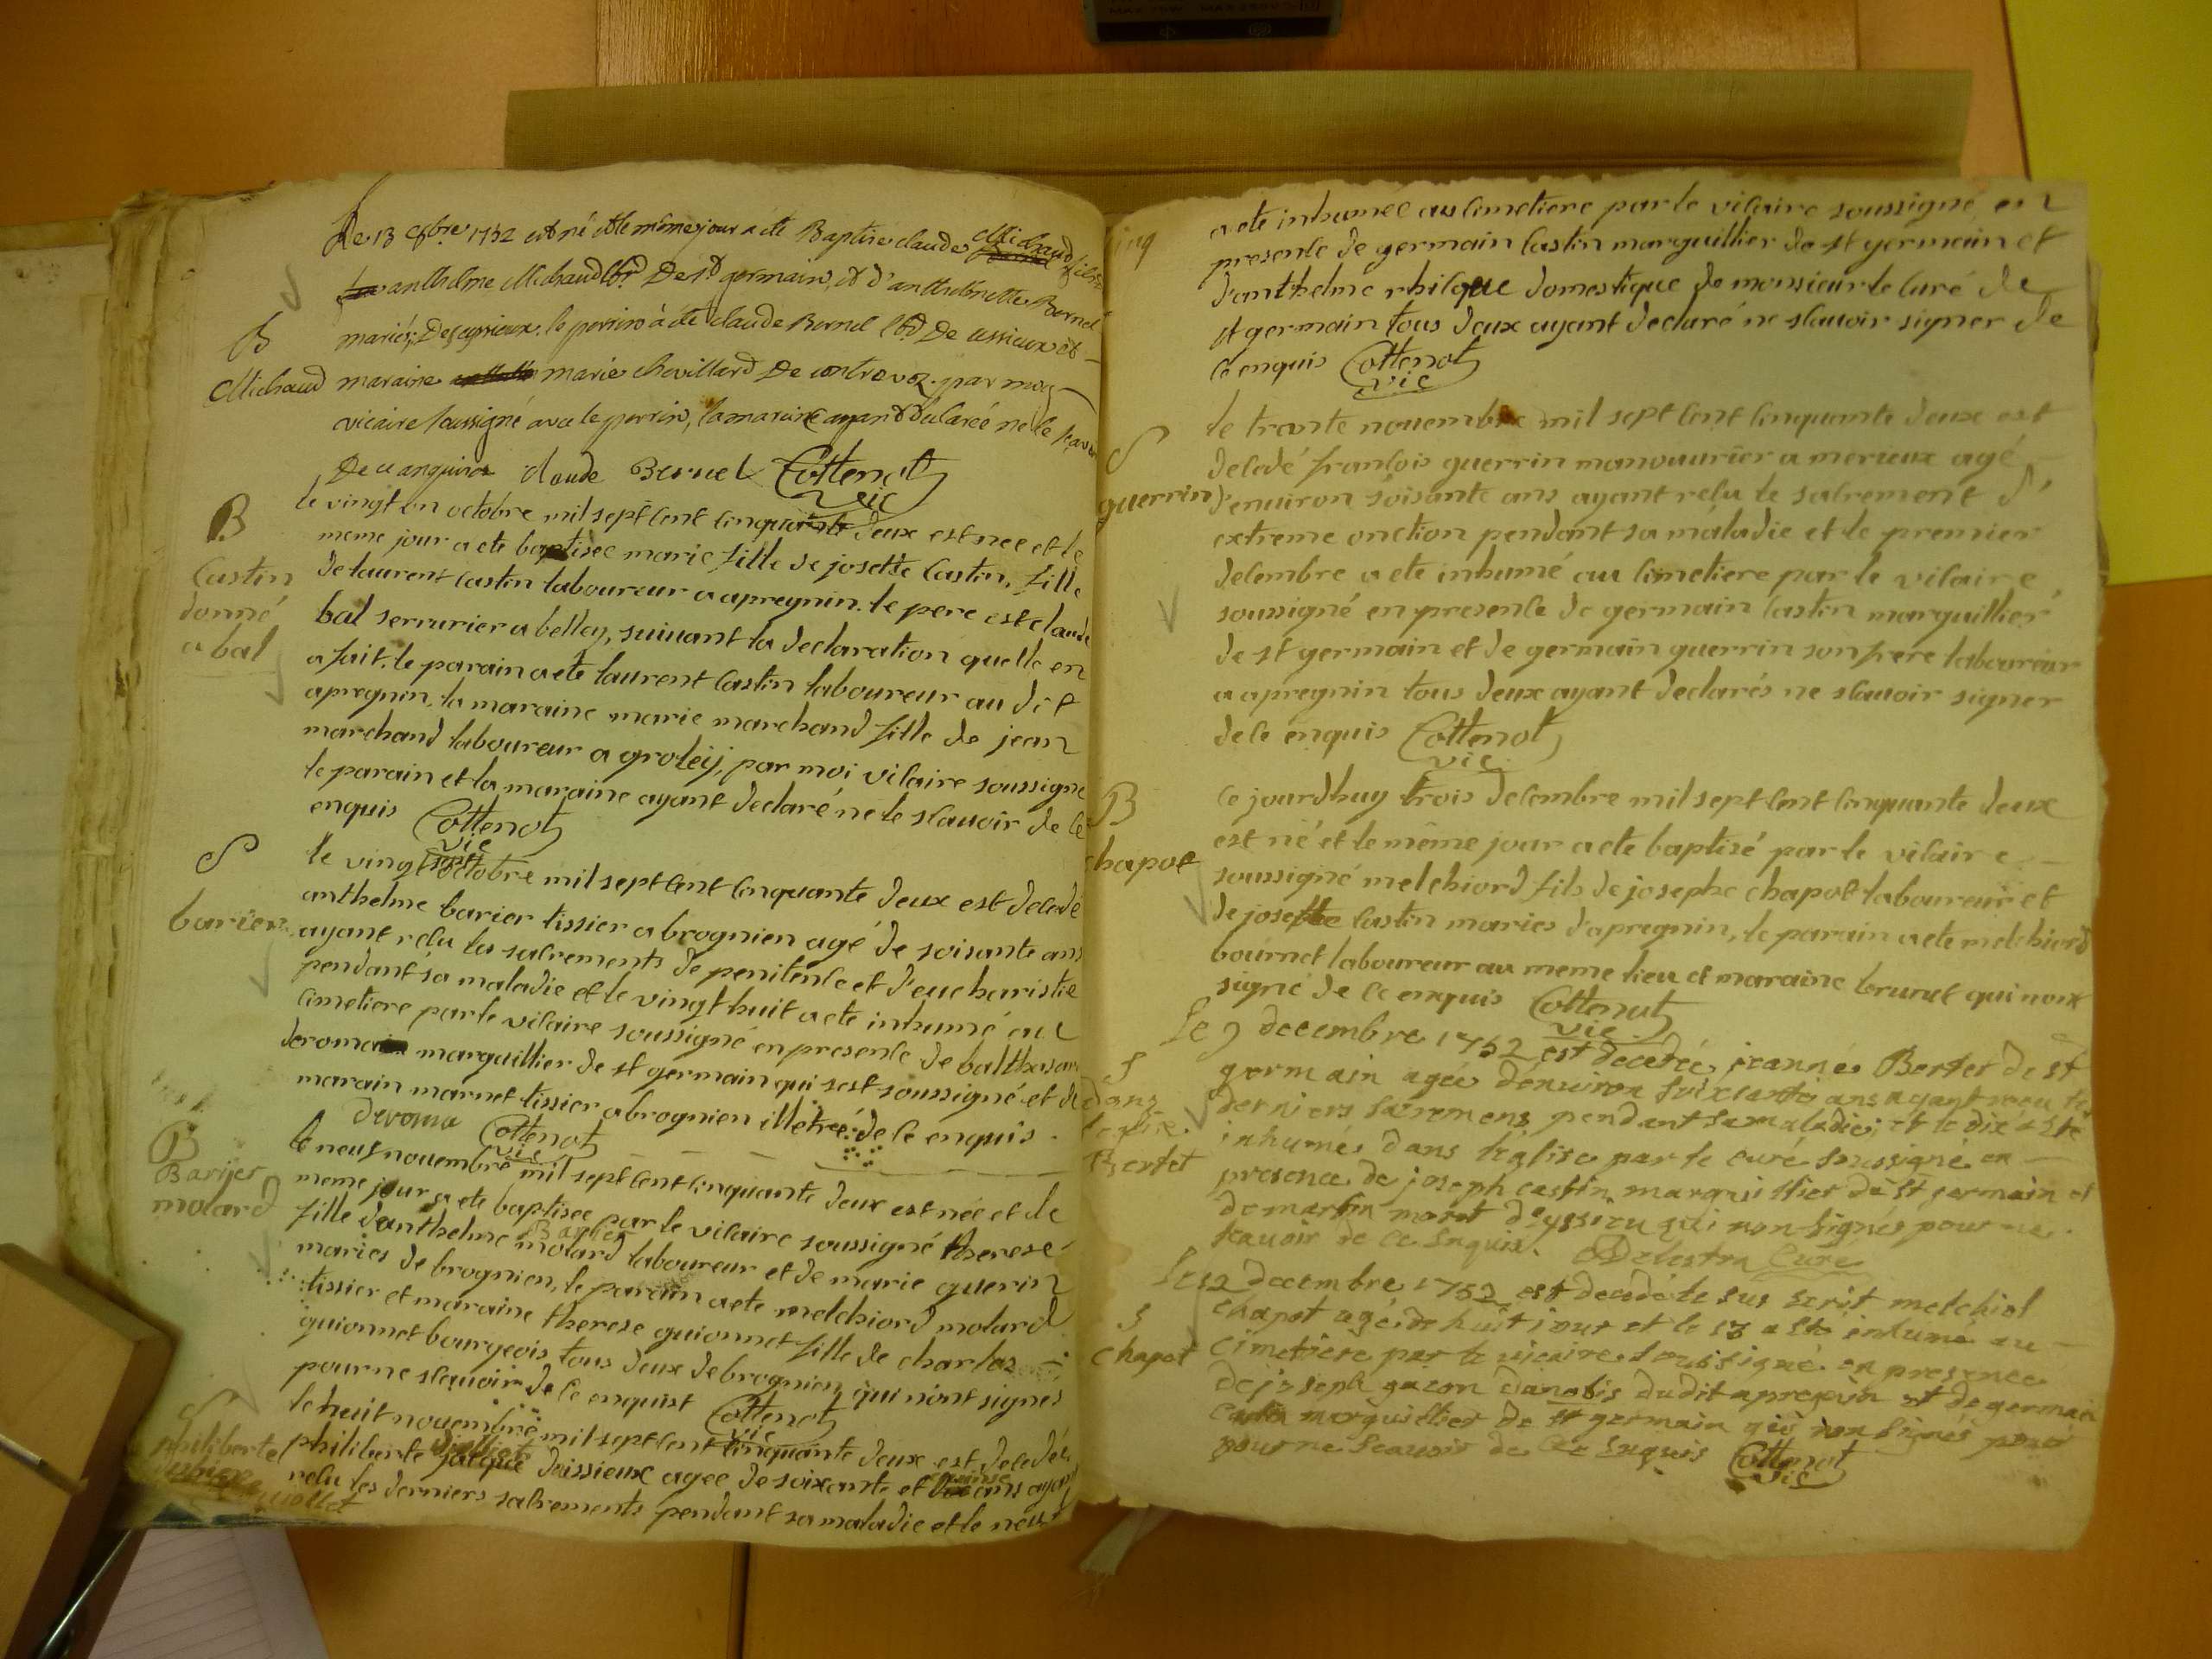 Le 13 8bre 1752 est né et le même jour a été Baptisé claude Michaud fils
anthelme Michaud lbr De st germain, et d'anthelmette Bernel
B
mariés, Desayssieux. le perrin à été claude Bernel lbr De essieux et
Michaud
maraine marie chovillard De contrevoz. par moy
vicaire soussigné avec le perrin, la maraine ayant declarée ne le scavoir
De ce anquise claude Bernel Cottenot
vic
B
Castin
donné
a bal
le vingt un octobre mil sept cent cinquante deux est nee et le
meme jour a ete baptisee marie fille de josette Castin, fille
de laurent castin laboureur a apregnin. le pere est claude
bal serrurier a belley, suivant la declaration quelle en
a fait. le parain a ete laurent Castin laboureur au dit
apregnin, la maraine marie marchand fille de jean
marchand laboureur a groleij, par moi vicaire soussigné
le parain et la maraine ayant declaré ne le scavoir de ce
enquis Cottenot
vic
S
barier
le vingt sept octobre mil sept cent cinquante deux est decedé
anthelme barier tissier a brognien agé de soisante ans
ayant recu les sacrements de penitence et d'eucharistie
pendant sa maladie et le vingt huit a ete inhumé au
cimetiere par le vicaire soussigné en presence de balthesar
deromain marguillier de st germain qui sest soussigné et de
marain marnet tissier a brognien illetré de ce enquis
deroma Cottenot
vic
B
Barijer
molard
le neuf nouembre mil sept cent cinquante deux est née et le
meme jour a ete baptisee par le vicaire soussigné therese
Barijer
fille d'anthelme molard laboureur et de marie guerin
maries de brognien, le parain a ete melchiord molard
tissier et maraine therese guionnet fille de charles
guionnet bourgeois tous deux de brognien qui n'ont signes
pour ne scauoir de ce enquist Cottenot
vic
S
philiberte
juillet
le huit nouembre mil sept cent cinquante deux est decedée
philiberte daissieux agee de soixante et quinse ans ayant
recu les derniers sacrements pendant sa maladie et le neuf
a ete inhumee au cimetiere par le vicaire soussigné en
presence de germain Castin marguillier de st germain et
d'anthelme philque domestique de monsieur le curé de
st germain tous deux ayant declaré ne scavoir signer de
ce enquis Cottenot
vic
S
guerrin
le trante nouembre mil sept cent cinquante deux est
decedé francois guerrin manouurier a merieux agé
d'enuiron soisante ans ayant recu le sacrement d'
extreme onction pendant sa maladie et le premier
decembre a ete inhumé au cimetiere par le vicaire
soussigné en presence de germain Castin marguillier
de st germain et de germain guerrin son frere laboureur
a apregnin tous deux ayant declarés ne scauoir signer
de ce enquis Cottenot
vic
B
chapot
ce jourdhuy trois decembre mil sept cent cinquante deux
est né et le même jour a ete baptisé par le vicaire
soussigné melchiord fils de josephe chapot laboureur et
de josette Castin maries d'apregnin, le parain a ete melchiord
bournet laboureur au meme lieu et maraine brunet qui n'ont
signé de ce enquis Cottenot
vic
S
dans
l'eglise
Bertet
Le 9 decembre 1752 est decedée jeanne Bertet de st
germain agée d'enuiron soixante ans ayant receu les
derniers sacremens pendant sa maladie; et le dix a été
inhumée dans l'église par le curé soussigné en
presence de joseph castin marguillier de st germain et
de martin moret d'eyssieu qui n'on signés pour ne
scauoir de ce enquis. Delestra Curé
S
chapot
Le 12 decembre 1752 est decedé le sus scrit melchiol
chapot agé de huit jour et le 13 a été inhumé au
cimetiere par le vicaire soussigné en presence
de joseph gacon danobis dudit apregnin et de germain
castin marguillier de st germain qui n'on signés pour
pour ne scauoir de ce enquis Cottenot
vic